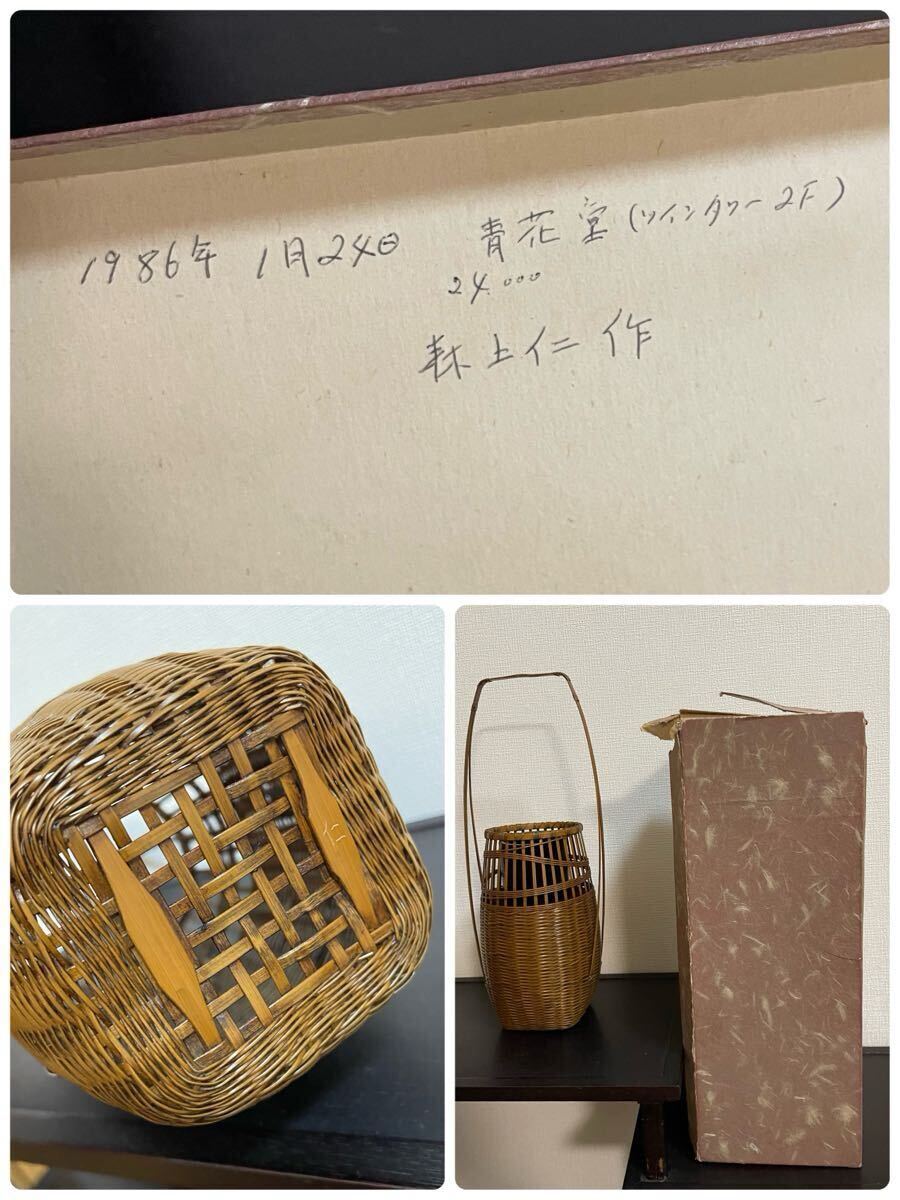 1986年 1月24日 青花堂(ツインタワー2F)
24.000
森上仁 作
仁